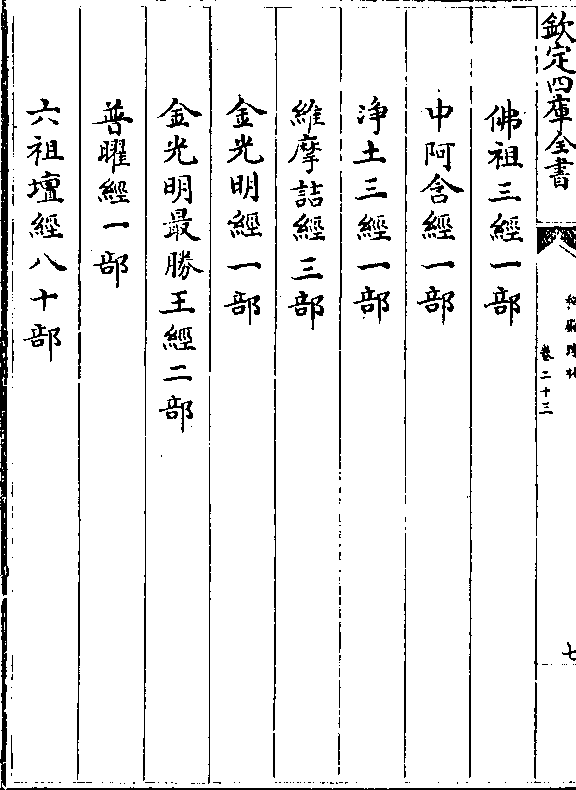 欽定四庫全書
卷二十三
七
佛祖三經一部
中阿含經一部
淨土三經一部
維摩詰經三部
金光明經一部
金光明最勝王經二部
普曜經一部
六祖壇經八十部